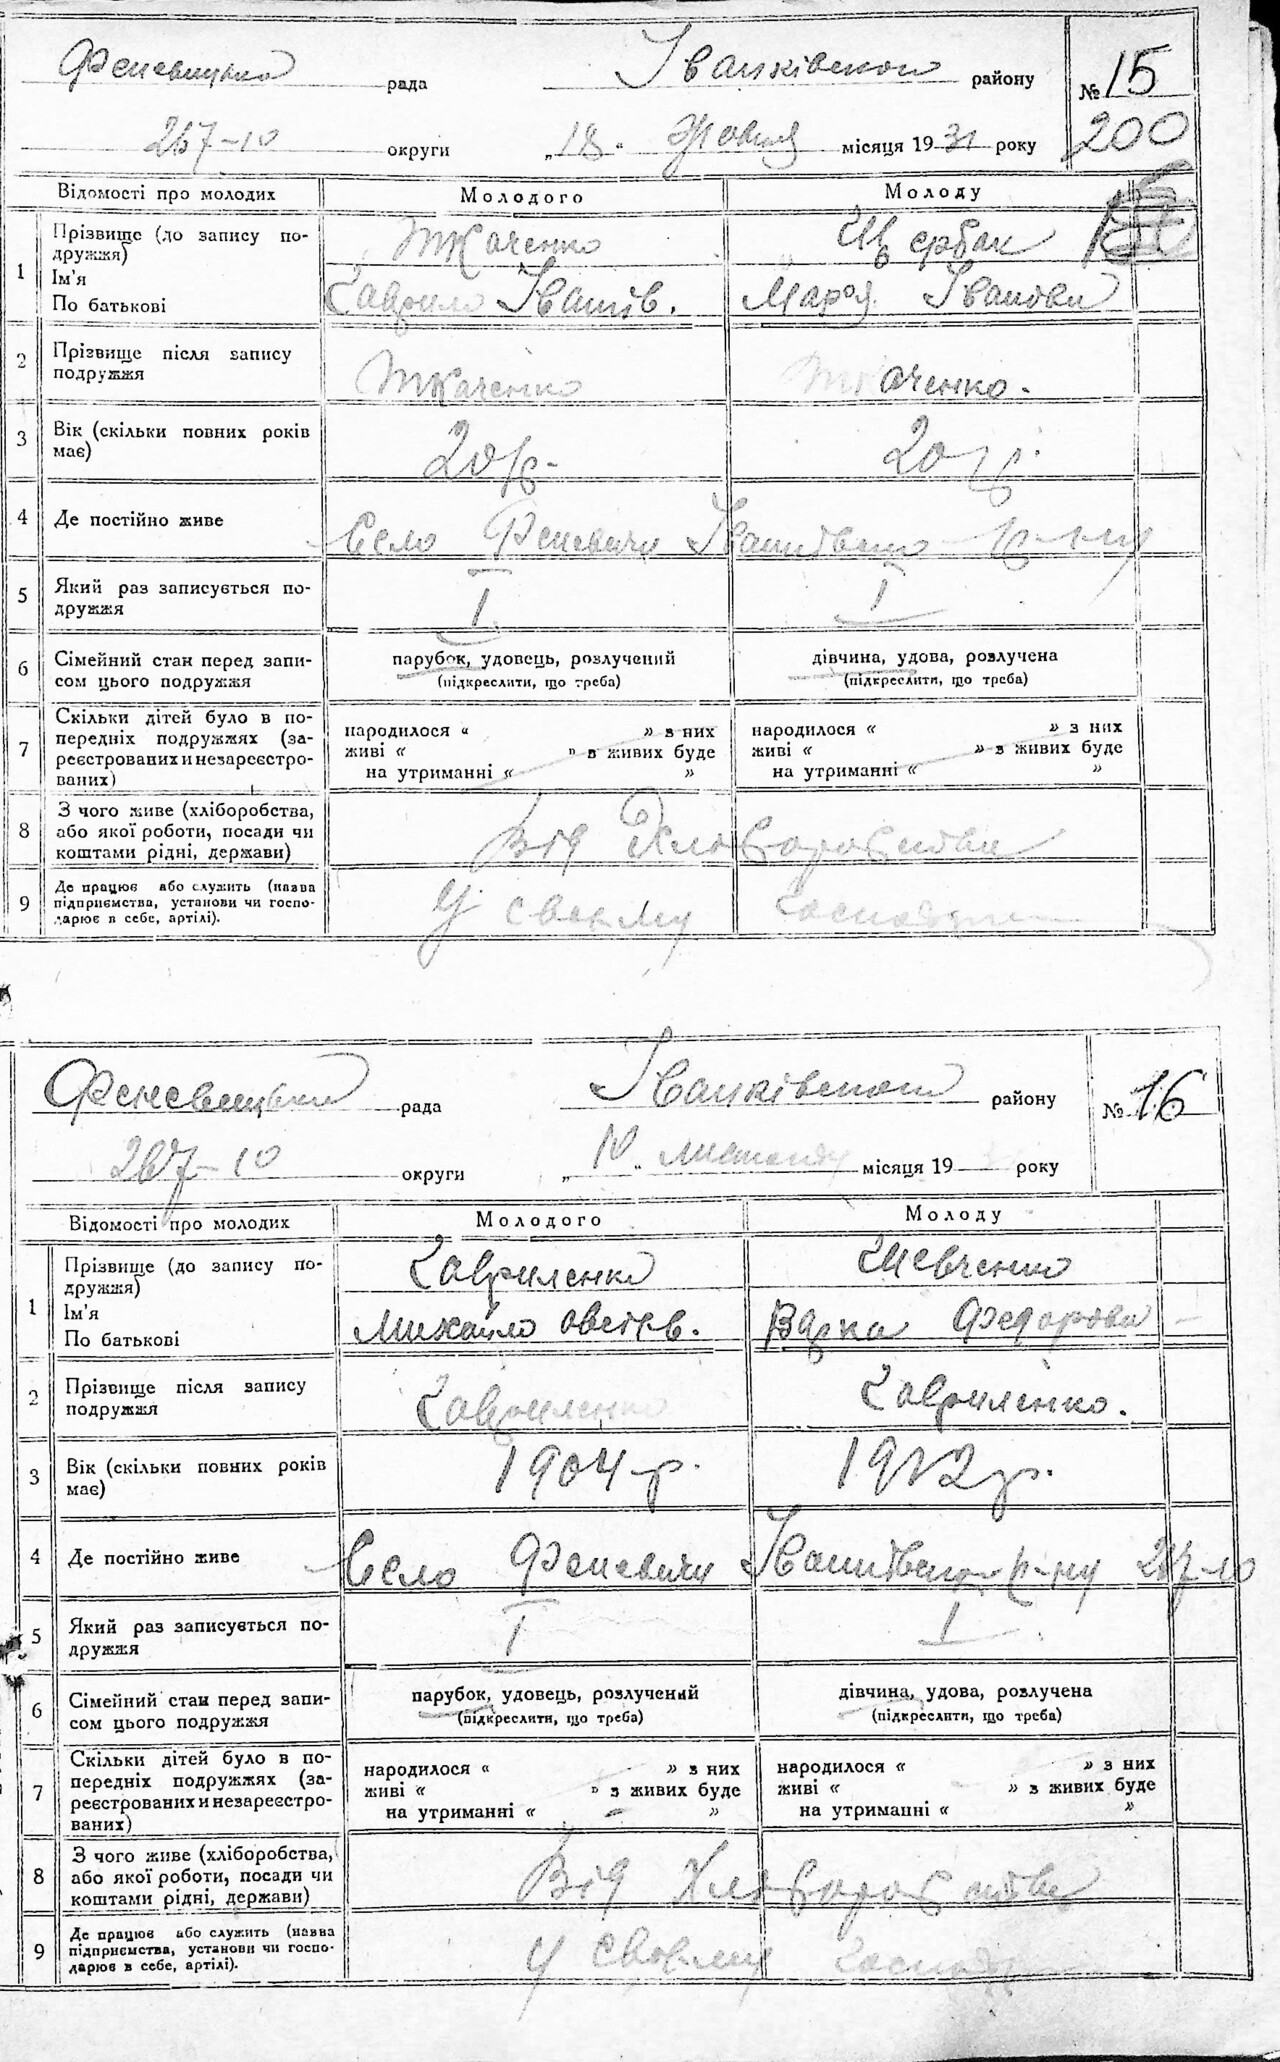 Феневицька рада Іванківського району № 15
267-10 округи „18“ Жовтня місяця 1931 року 200
Відомості про молодих Молодого Молоду
1 Прізвище (до запису по- Ткаченко Щербак
дружжя)
Ім'я
По батькові Гаврило Іванів. Марія Іванова
2 Прізвище після запису
подружжя Ткаченко Ткаченко.
3 Вік (скільки повних років
має) 20 р. 20 р.
4 Де постійно живе Село Феневичи Іванківського р-ну
5 Який раз записується по- I I
дружжя
6 Сімейний стан перед запи- парубок, удовець, розлучений дівчина, удова, розлучена
сом цього подружжя (підкреслити, що треба) (підкреслити, що треба)
7 Скільки дітей було в по-
передніх подружжях (за- народилося “ ” з них народилося “ ” з них
реєстрованих и незареєстро- живі “ ” з живих буде живі “ ” з живих буде
ваних) на утриманні “ ” на утриманні “ ”
8 З чого живе (хліборобства,
або якої роботи, посади чи Від Хліборобства
коштами рідні, держави)
9 Де працює або служить (назва
підприємства, установи чи госпо- У своєму
дарює в себе, артілі).
Феневицька рада Іванківського району № 16
267-10 округи „10“ листопада місяця 19 року
Відомості про молодих Молодого Молоду
1 Прізвище (до запису по- Гавриленко Шевченко
дружжя)
Ім'я
По батькові Михайло Федорова
2 Прізвище після запису
подружжя Гавриленко Гавриленко.
3 Вік (скільки повних років
має) 1904 р. 1912 р.
4 Де постійно живе Село Феневичи Іванківського р-ну 267-10
5 Який раз записується по- I I
дружжя
6 Сімейний стан перед запи- парубок, удовець, розлучений дівчина, удова, розлучена
сом цього подружжя (підкреслити, що треба) (підкреслити, що треба)
7 Скільки дітей було в по-
передніх подружжях (за- народилося “ ” з них народилося “ ” з них
реєстрованих и незареєстро- живі “ ” з живих буде живі “ ” з живих буде
ваних) на утриманні “ ” на утриманні “ ”
8 З чого живе (хліборобства,
або якої роботи, посади чи Від Хліборобства
коштами рідні, держави)
9 Де працює або служить (назва
підприємства, установи чи госпо- у своєму
дарює в себе, артілі).